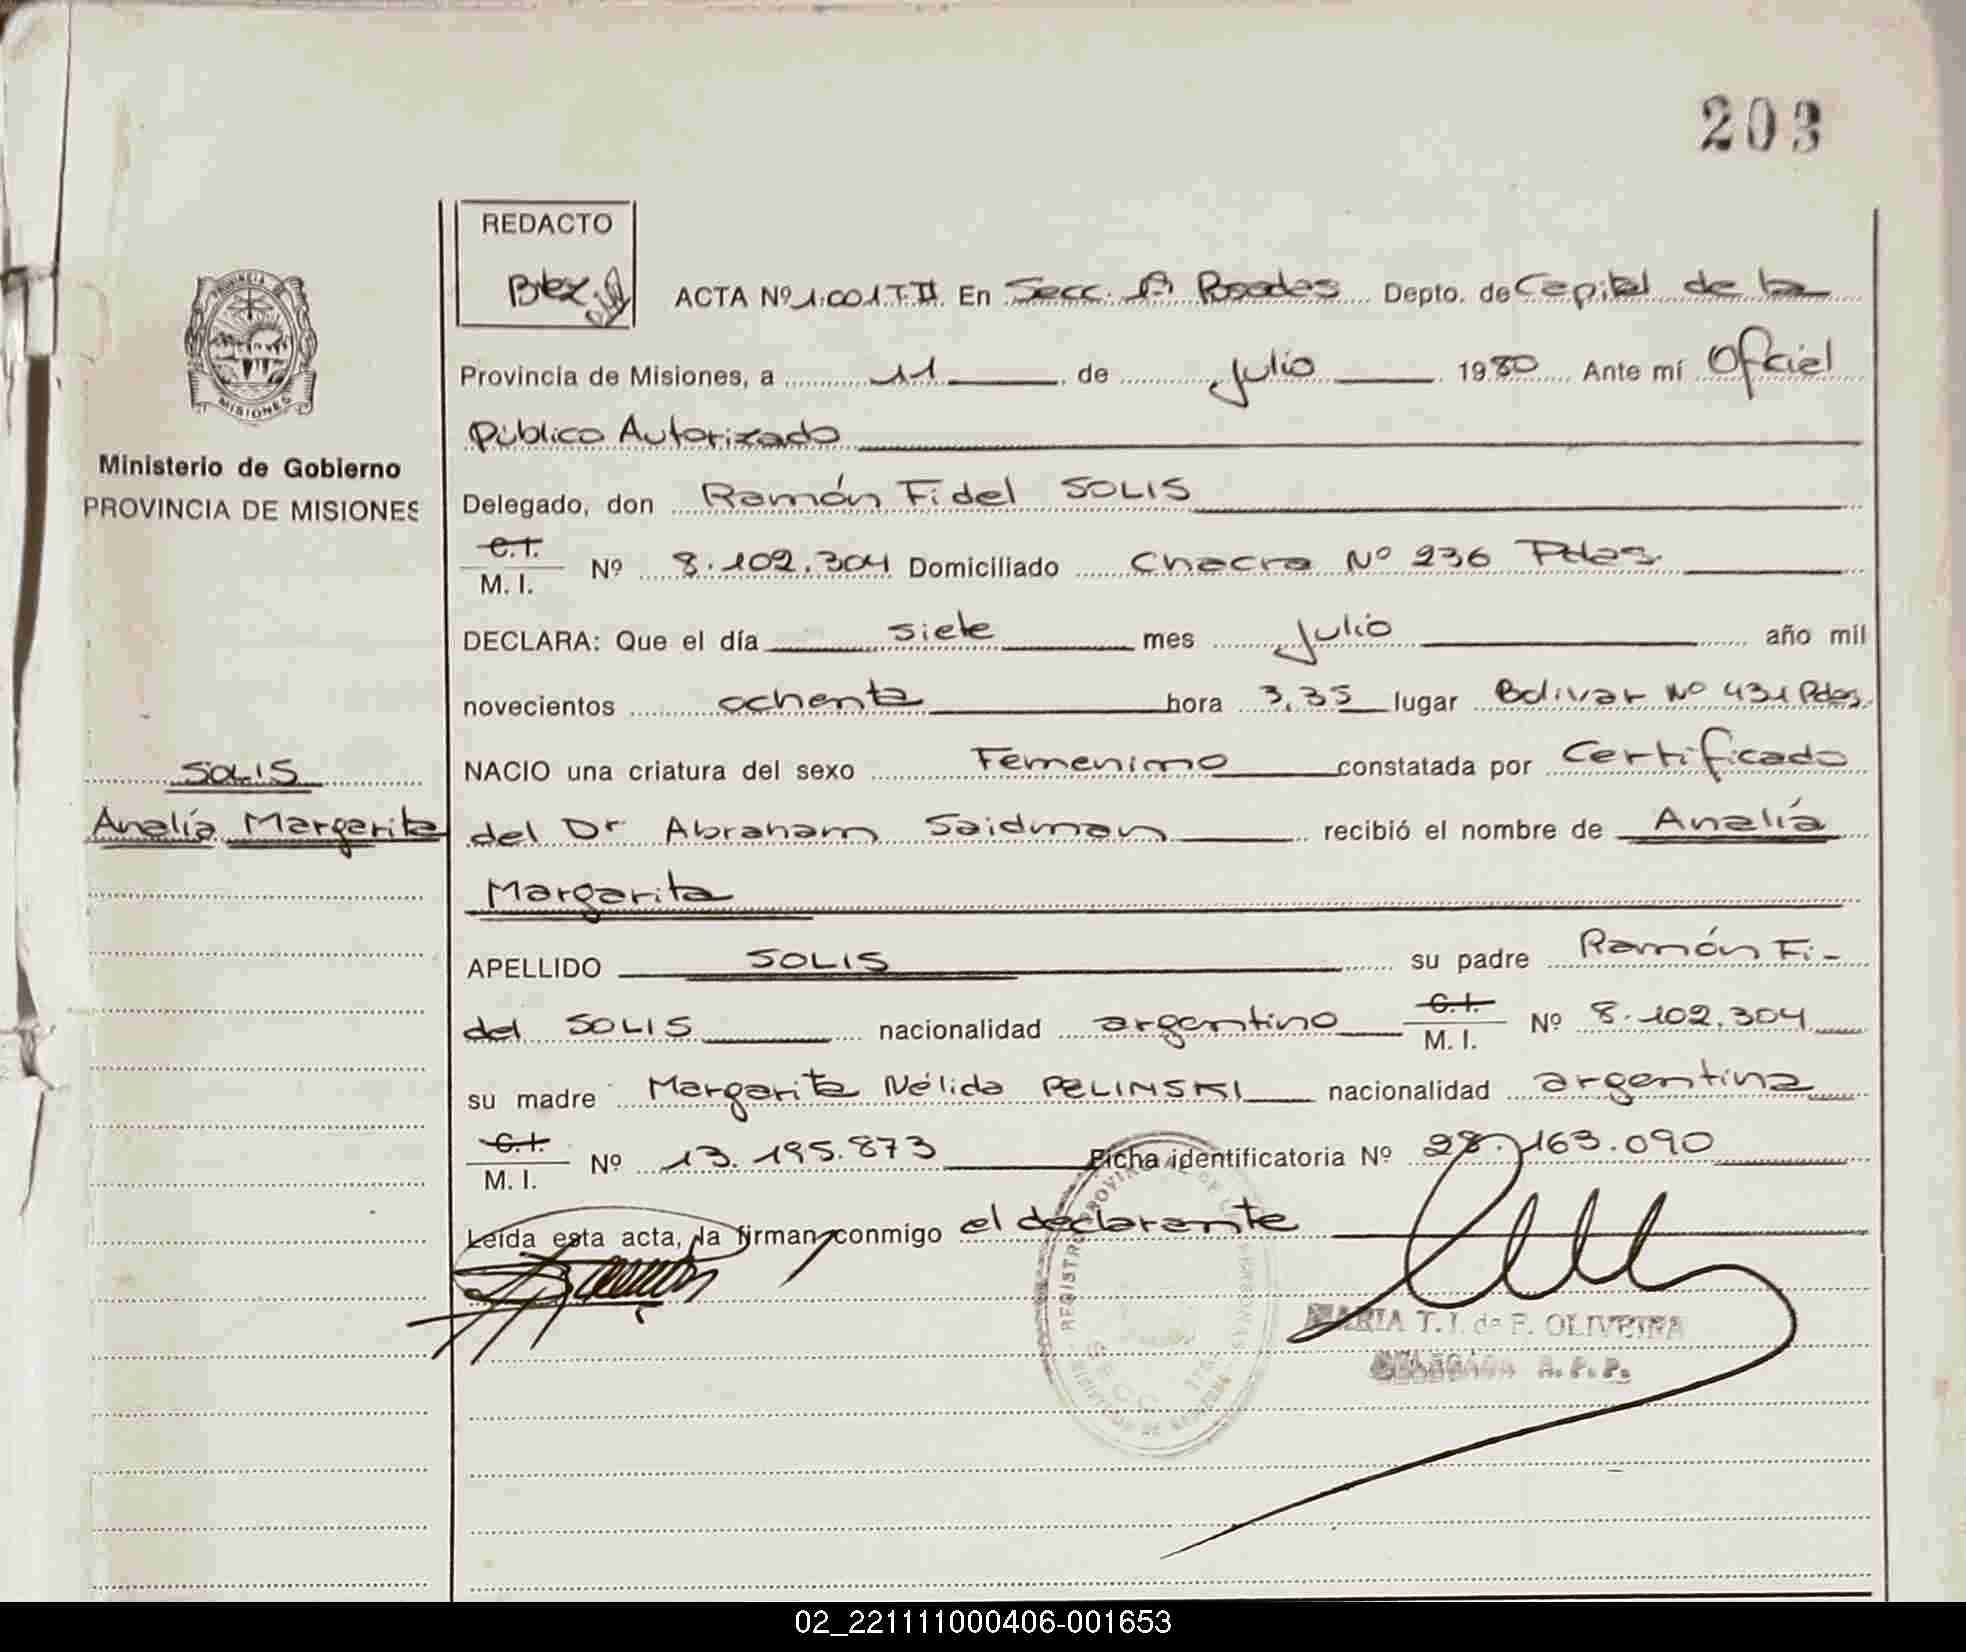 203
REDACTO
Btez.
ACTA Nº 1.001 T. II. En Secc. 1ª Posadas Depto. de Capital de la
PROVINCIA DE
MISIONES
Provincia de Misiones, a 11 de Julio 1980 Ante mí Oficial
Público Autorizado
Ministerio de Gobierno
PROVINCIA DE MISIONES
Delegado, don Ramón Fidel SOLIS
C.I.
M. I. Nº 8.102.304 Domiciliado Chacra Nº 236 Pdas.
DECLARA: Que el día siete mes Julio año mil
novecientos ochenta hora 3,35 lugar Bolivar Nº 431 Pdas.
SOLIS
Analía Margarita
NACIO una criatura del sexo Femenino constatada por Certificado
del Dr Abraham Saidman recibió el nombre de Analía
Margarita
APELLIDO SOLIS su padre Ramón Fi-
del SOLIS nacionalidad argentino C.I. M. I. Nº 8.102.304
su madre Margarita Nélida PELINSKI nacionalidad argentina
C.I.
M. I. Nº 13.195.873 Ficha identificatoria Nº 28.163.090
Leída esta acta, la firman conmigo el declarante
REGISTRO PROVINCIAL DE LAS PERSONAS
SECC.
MARIA T. I. de F. OLIVEIRA
DELEGADA R. P. P.
02_221111000406-001653